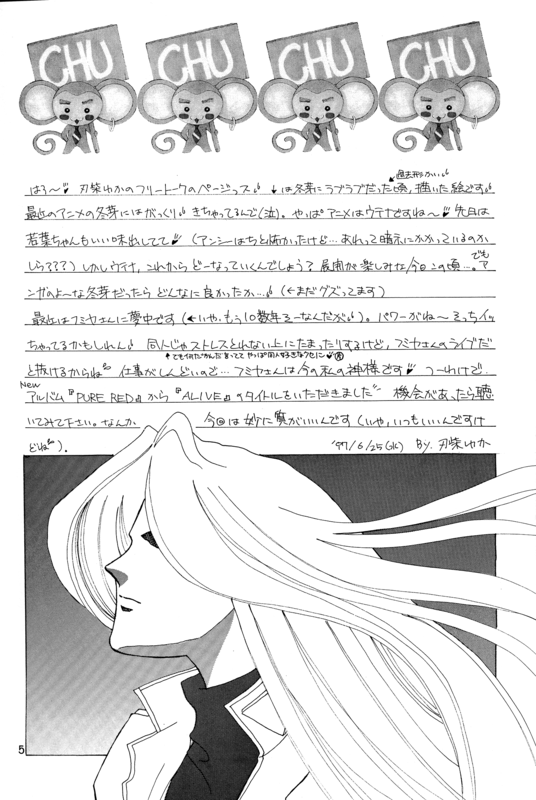 CHU CHU CHU CHU
はろ〜 刃柴ゆかのフリートークのページっス ↓は冬芽にラブラブだった頃、描いた絵です
過去形かい
最近のアニメの冬芽にはがっくり きちゃってるんで(泣)。やっぱアニメはウテナですね〜 先日は
若葉ちゃんもいい味出してて (アンシーはちと怖かったけど…あれって暗示にかかっているのか
しら???) しかしウテナ、これからどーなっていくんでしょう? 展開が楽しみな今日この頃…。でもア
ンガのよ〜な冬芽だったら どんなに良かったか… (←まだグズってます)
最近はフミヤさんに夢中です (←いや、もう10数年そーなんだが)。パワーがね〜 えっちイッ
ちゃってるかもしれん 同人じゃストレスとれない上にたまったりするけど、フミヤさんのライブだ
←でも何だかんだ言っててやっぱ同人好きなクセに
と抜けるからね 仕事がしんどいので… フミヤさんは今の私の神様です つーわけで、
New
アルバム『PURE RED』から『ALIVE』のタイトルをいただきました 機会があったら聴
いてみて下さい。なんか 今回は妙に質がいいんです(いや、いつもいいんですけ
どね)。
'97/6/25(水) BY. 刃柴ゆか
5